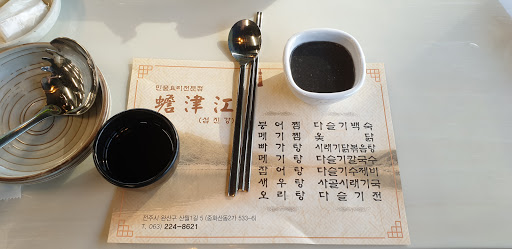 민물요리전문점
蟾津江
(섬진강)
붕어찜 다슬기백숙
메기찜 옻닭
빠가탕 시래기닭볶음탕
메기탕 다슬기칼국수
잡어탕 다슬기수제비
새우탕 사골시래기국
오리탕 다슬기전
전주시 완산구 산월1길 5 (중화산동2가 533-6)
T. 063) 224-8621